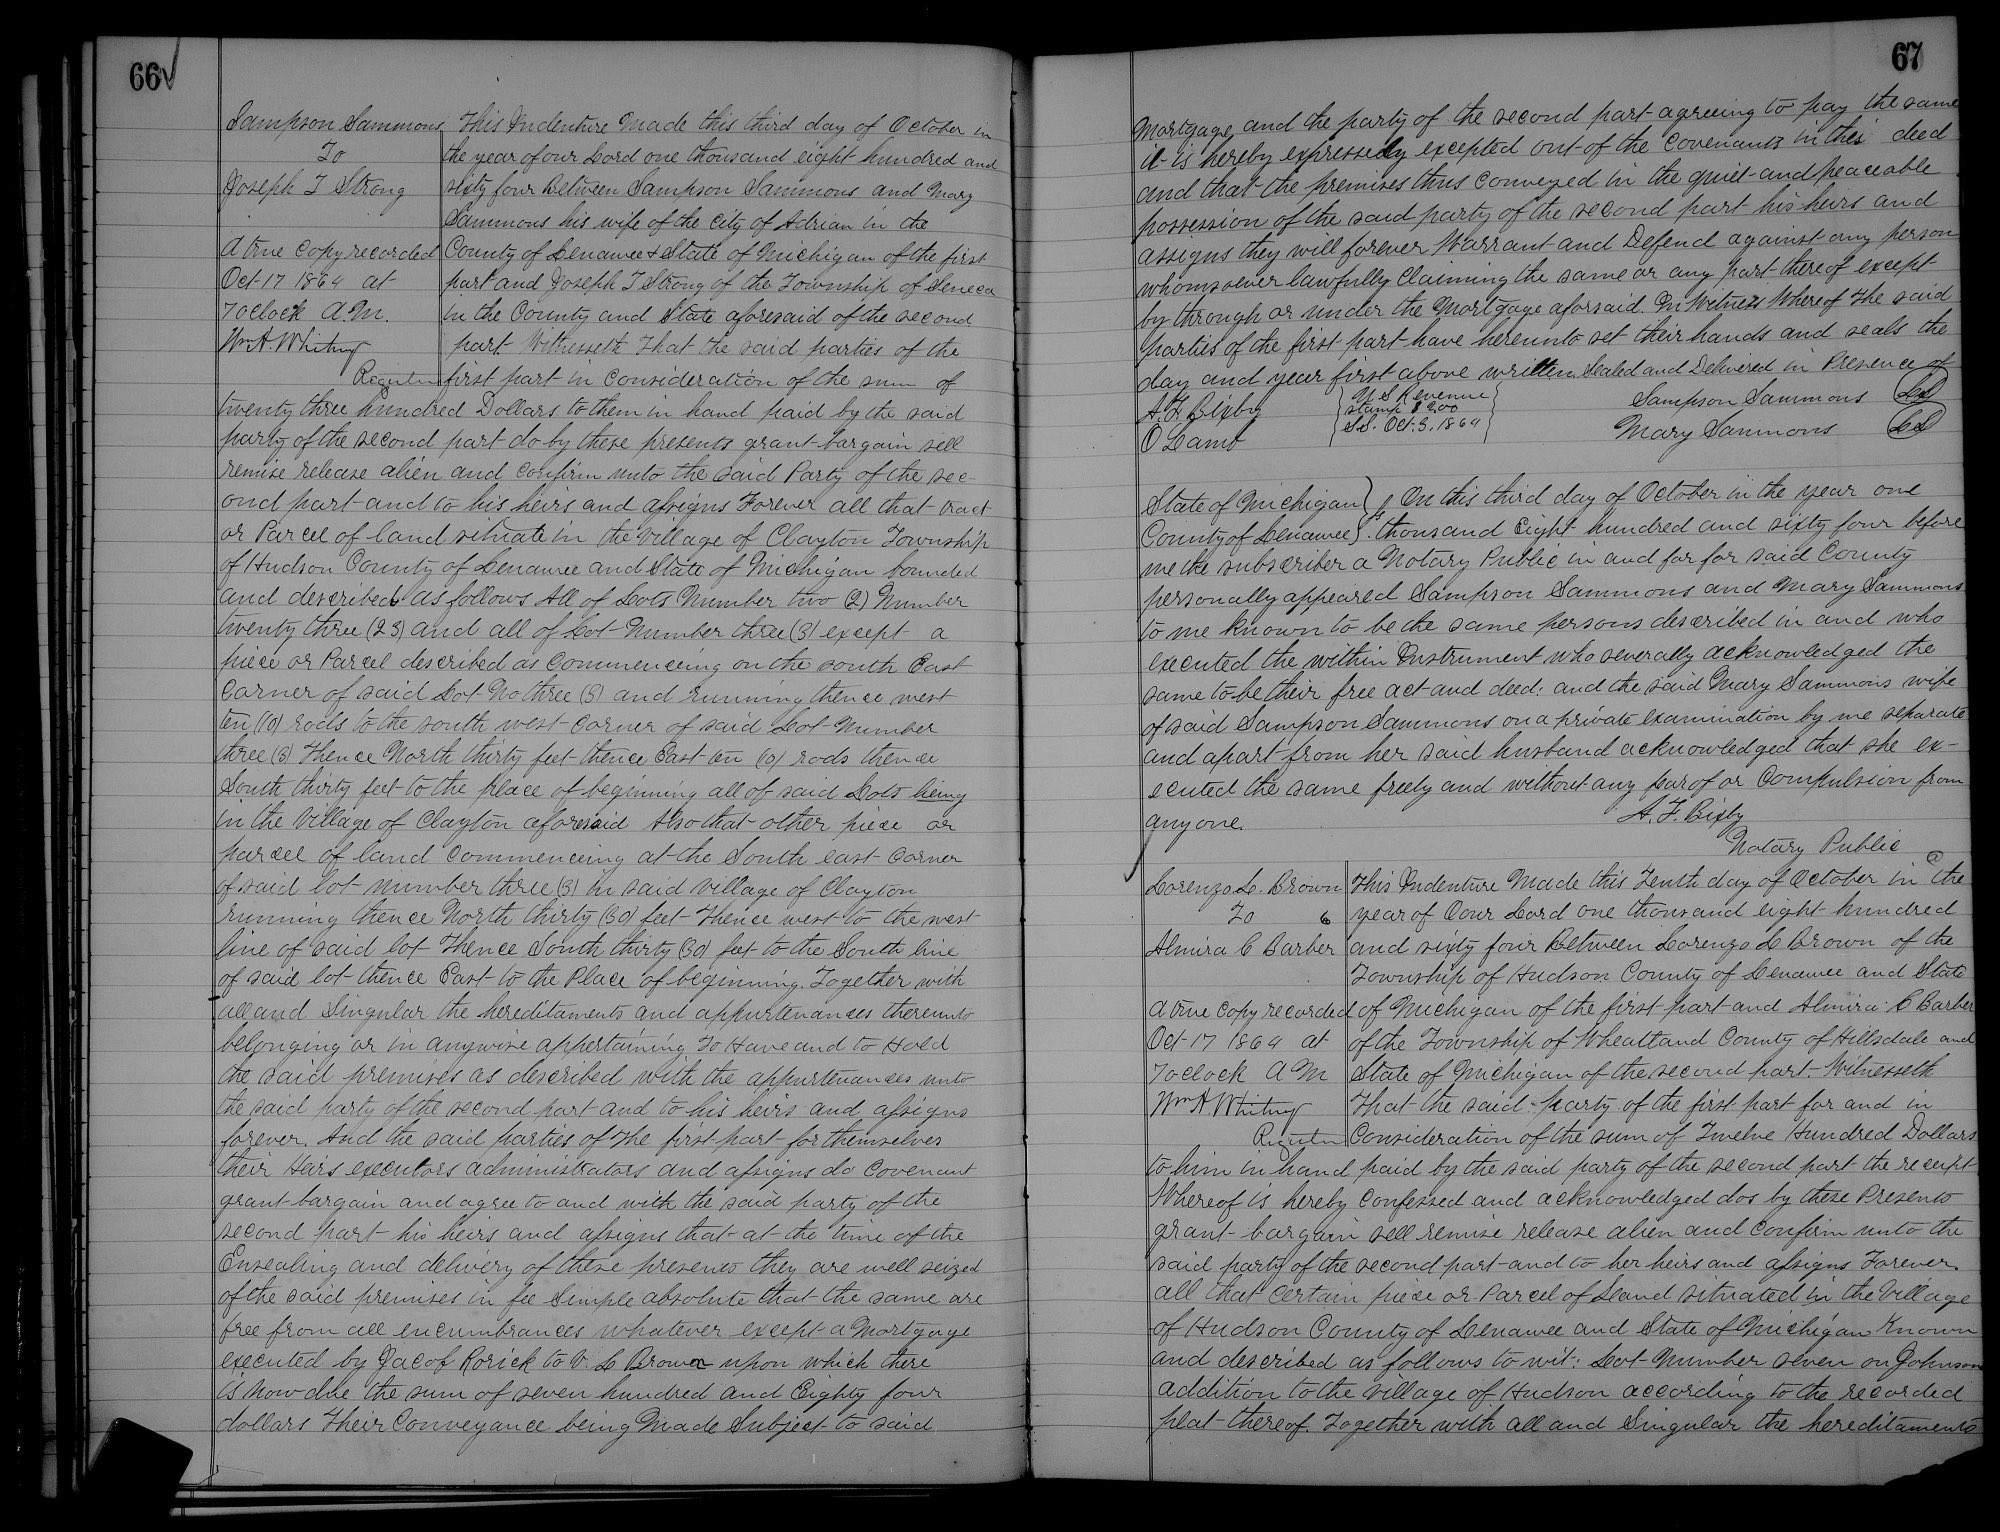 66
Sampson Sammons
To
Joseph T Strong
A true copy recorded
Oct 17 1864 at
7 oclock A.M.
Wm A. Whitney
Register
This Indenture Made this third day of October in
the year of our Lord one thousand eight hundred and
sixty four Between Sampson Sammons and Mary
Sammons his wife of the City of Adrian in the
County of Lenawee & State of Michigan of the first
part and Joseph T Strong of the Township of Seneca
in the County and State aforesaid of the second
part Witnesseth That the said parties of the
first part in Consideration of the sum of
twenty three hundred Dollars to them in hand paid by the said
party of the second part do by these presents grant bargain sell
remise release alien and Confirm unto the said Party of the sec-
ond part and to his heirs and assigns Forever all that tract
or Parcel of land situate in the Village of Clayton Township
of Hudson County of Lenawee and State of Michigan bounded
and described as follows All of Lots Number two (2) Number
twenty three (23) and all of Lot Number three (3) except a
piece or Parcel described as Commenceing on the south East
Corner of said Lot No three (3) and running thence west
ten (10) rods to the south west Corner of said Lot Number
three (3) Thence North thirty feet thence East ten (10) rods thence
South thirty feet to the place of beginning all of said Lots being
in the Village of Clayton aforesaid Also that other piece or
parcel of land Commenceing at the South east Corner
of said lot number three (3) in said village of Clayton
running thence North thirty (30) feet Thence west to the west
line of said lot Thence South thirty (30) feet to the South line
of said lot thence East to the Place of beginning. Together with
all and Singular the hereditaments and appurtenances thereunto
belonging or in anywise appertaining To Have and to Hold
the said premises as described with the appurtenances unto
the said party of the second part and to his heirs and assigns
forever. And the said parties of the first part for themselves
their Heirs executors administrators and assigns do Covenant
grant bargain and agree to and with the said party of the
second part his heirs and assigns that at the time of the
Ensealing and delivery of these presents they are well seized
of the said premises in fee Simple absolute that the same are
free from all encumbrances whatever except a Mortgage
executed by Jacob Rorick to V. L Brown upon which there
is now due the sum of seven hundred and Eighty four
dollars Their Conveyance being Made Subject to said
67
Mortgage, and the party of the second part agreeing to pay the same
it is hereby expressedly excepted out of the Covenants in this deed
and that the premises thus Conveyed in the quiet and peaceable
possession of the said party of the second part his heirs and
assigns they will forever Warrant and Defend against any person
whomsoever lawfully Claiming the same or any part thereof except
by through or under the Mortgage aforsaid. In Witness Whereof The said
parties of the first part have hereunto set their hands and seals the
day and year first above written Sealed and Delivered in Presence of
A. F. Bixby
O Lamb
U S Revenue
stamp $2.00
S.S. Oct. 3, 1864
Sampson Sammons LS
Mary Sammons LS
State of Michigan } ss On this third day of October in the year one
County of Lenawee } thousand Eight hundred and sixty four before
me the subscriber a Notary Public in and for for said County
personally appeared Sampson Sammons and Mary Sammons
to me known to be the same persons described in and who
executed the within Instrument who severally acknowledged the
same to be their free act and deed; and the said Mary Sammons wife
of said Sampson Sammons on a private examination by me separate
and apart from her said husband acknowledged that she ex-
ecuted the same freely and without any fear of or Compulsion from
any one.
A. F. Bixby
Notary Public
Lorenzo L. Brown
To 6
Almira C Barber
A true copy recorded
Oct 17 1864 at
7 oclock A M
Wm A Whitney
Register
This Indenture Made this Tenth day of October in the
year of Oour Lord one thousand eight hundred
and sixty four Between Lorenzo L Brown of the
Township of Hudson County of Lenawee and State
of Michigan of the first part and Almira C Barber
of the Township of Wheatland County of Hillsdale and
State of Michigan of the second part. Witnesseth
That the said party of the first part for and in
Consideration of the sum of Twelve Hundred Dollars
to him in hand paid by the said party of the second part the receipt
Whereof is hereby Confessed and acknowledged dos by these Presents
grant bargain sell remise release alien and Confirm unto the
said party of the second part and to her heirs and assigns Forever.
all that Certain piece or Parcel of Land situated in the Village
of Hudson County of Lenawee and State of Michigan Known
and described as follows to wit: Lot Number seven on Johnson
addition to the Village of Hudson according to the recorded
plat thereof. Together with all and Singular the hereditaments